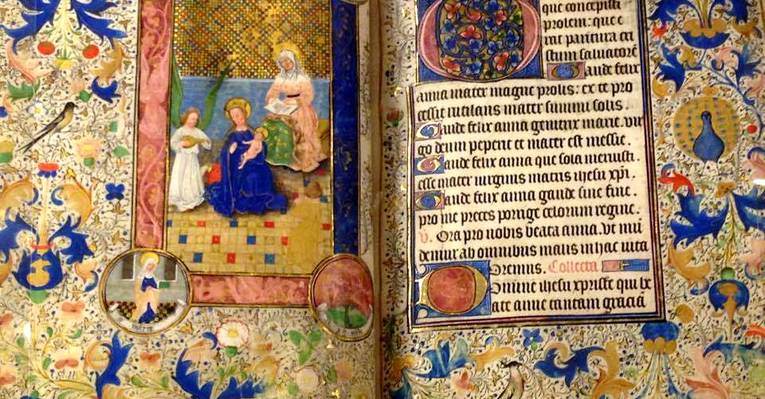 que concepisti
prolem: que e
me paritura es
stum saluatorē
Gaude felix
anna mater magne prolis: ex te pro
cessit rutilans mater summi solis.
Gaude felix anna genitrix marie. vir
go deum peperit et mater est messie.
Gaude felix anna que sola meruisti.
esse mater virginis matris ihesu xpi.
Gaude felix anna gaude sine fine.
pro me preces porrige celorum regine.
V. Ora pro nobis beata anna. Vt mu
demur ab omnibus malis in hac vita
Oremus. Collecta
Domine ihesu xpriste qui be
ate anne tantam graciā